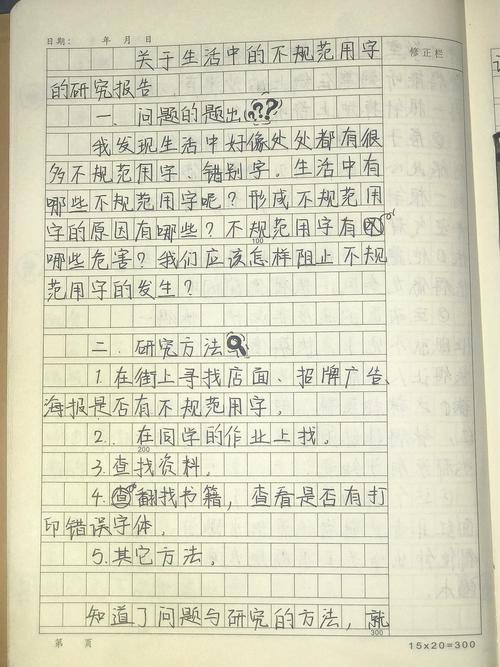 日期： 年 月 日
修正栏
关于生活中的不规范用字
的研究报告
一．问题的题出???
我发现生活中好像处处都有很
多不规范用字、错别字。生活中有
哪些不规范用字呢？形成不规范用
字的原因有哪些？不规范用字有
100
哪些危害？我们应该怎样阻止不规
范用字的发生？
二．研究方法
1.在街上寻找店面、招牌广告、
海报是否有不规范用字。
2.在同学的作业上找。
200
3.查找资料。
4.翻找书籍，查看是否有打
印错误字体。
5.其它方法。
知道了问题与研究的方法，就
300
第 页
15×20=300